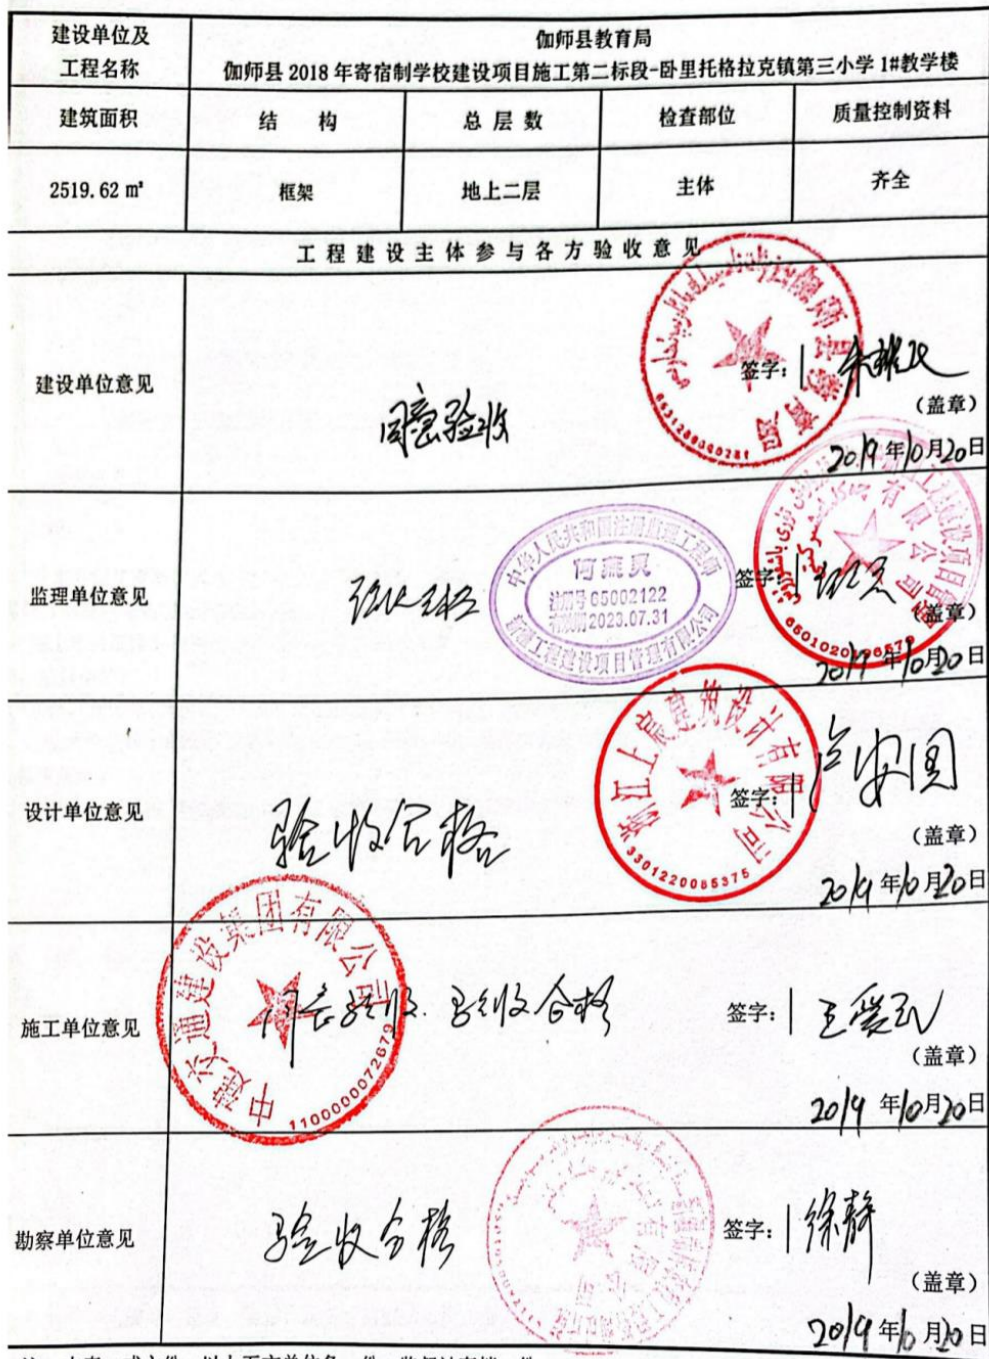 建设单位及
工程名称
伽师县教育局
伽师县 2018 年寄宿制学校建设项目施工第二标段-卧里托格拉克镇第三小学 1#教学楼
建筑面积 结 构 总 层 数 检查部位 质量控制资料
2519.62 ㎡ 框架 地上二层 主体 齐全
工 程 建 设 主 体 参 与 各 方 验 收 意 见
建设单位意见
同意验收
签字：
（盖章）
2019 年10月20日
6531290000281
监理单位意见
中华人民共和国注册监理工程师
何燕灵
注册号 65002122
有效期 2023.07.31
新疆工程建设项目管理有限公司
签字：
（盖章）
2019 年10月20日
设计单位意见
验收合格
浙江上宸建筑设计有限公司
3301220085375
签字：
（盖章）
2019 年10月20日
施工单位意见
中建交通建设集团有限公司
1100000072679
同意验收. 验收合格
签字： 王爱民
（盖章）
2019 年10月20日
勘察单位意见
验收合格
签字： 徐静
（盖章）
2019 年10月20日